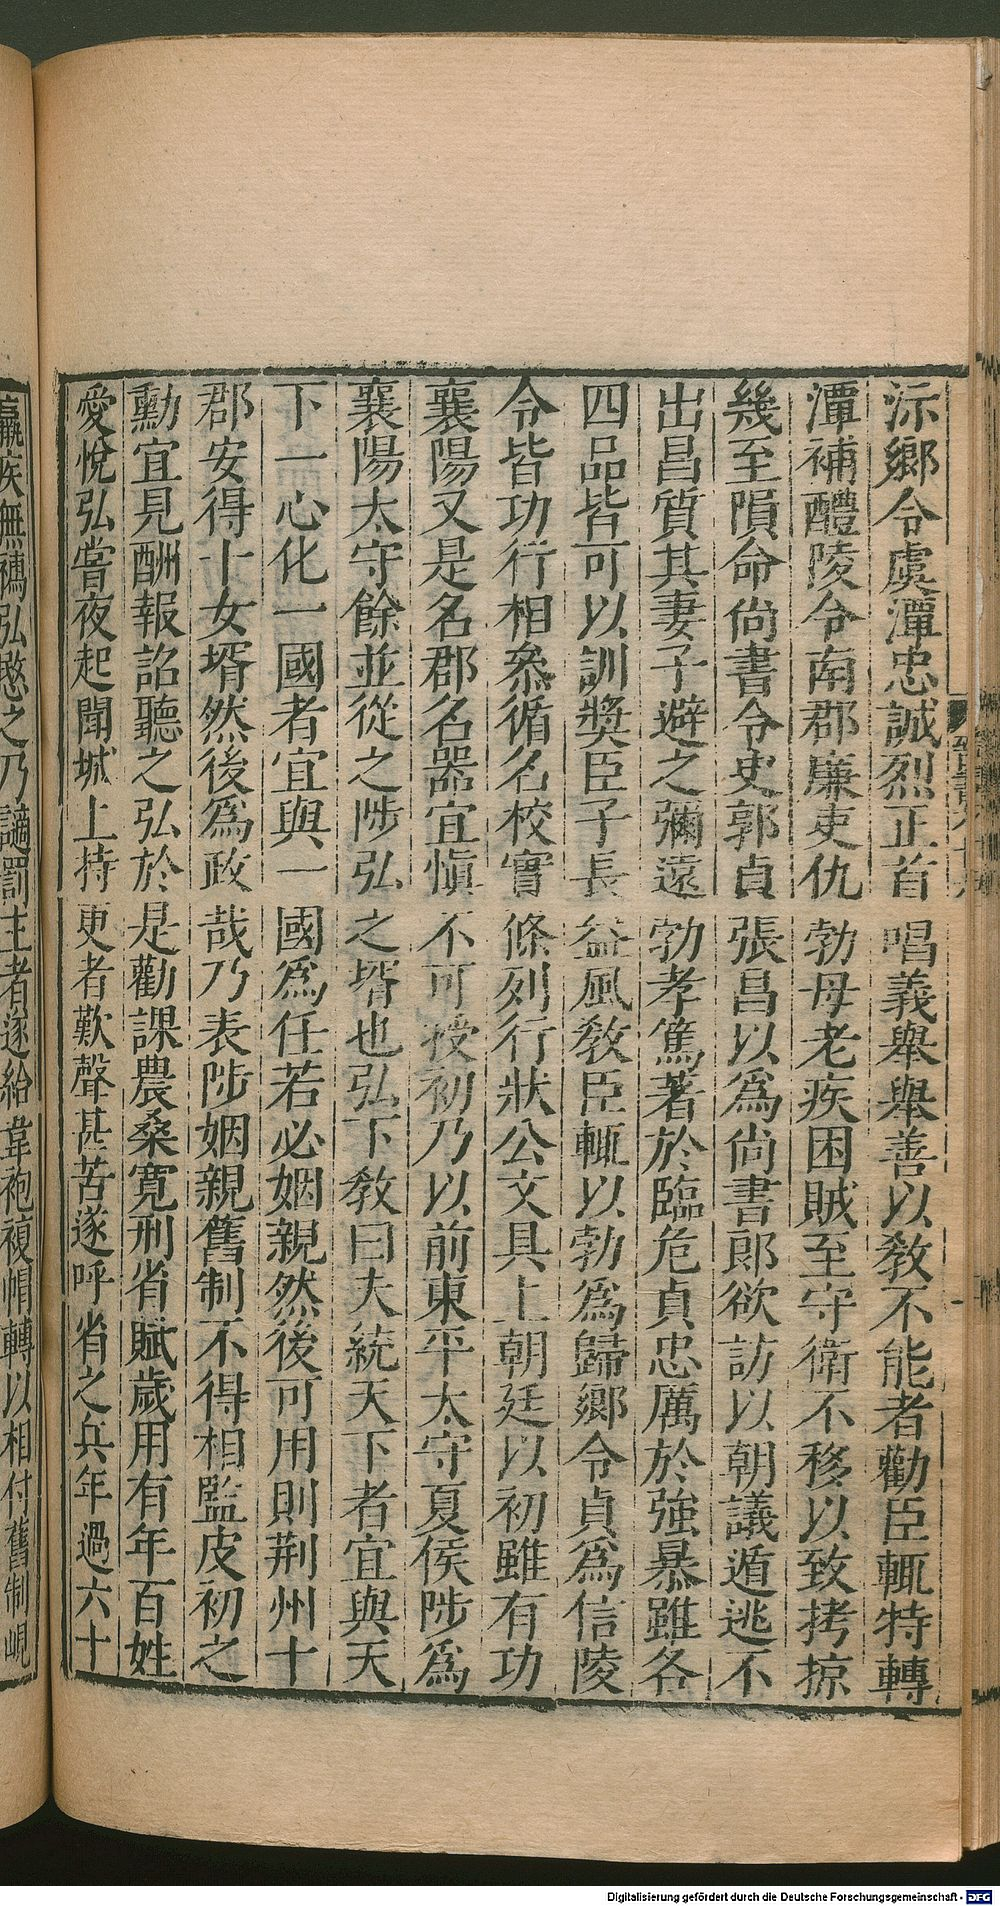 沶鄉令虞潭忠誠烈正首唱義舉舉善以敎不能者勸臣輒特轉
潭補醴陵令南郡廉吏仇勃母老疾困賊至守衛不移以致拷掠
幾至隕命尙書令史郭貞張昌以爲尙書郎欲訪以朝議遁逃不
出昌質其妻子避之彌遠勃孝篤著於臨危貞忠厲於強暴雖各
四品皆可以訓獎臣子長益風敎臣輒以勃爲歸鄉令貞爲信陵
令皆功行相叅循名校實條列行狀公文具上朝廷以初雖有功
襄陽又是名郡名器宜愼不可授初乃以前東平太守夏侯陟爲
襄陽太守餘並從之陟弘之壻也弘下敎曰夫統天下者宜與天
下一心化一國者宜與一國爲任若必姻親然後可用則荆州十
郡安得十女壻然後爲政哉乃表陟姻親舊制不得相監皮初之
勳宜見酬報詔聽之弘於是勸課農桑寬刑省賦歲用有年百姓
愛悅弘嘗夜起聞城上持更者歎聲甚苦遂呼省之兵年過六十
羸疾無襦弘愍之乃謫罰主者遂給韋袍複帽轉以相付舊制峴
Digitalisierung gefördert durch die Deutsche Forschungsgemeinschaft - DFG